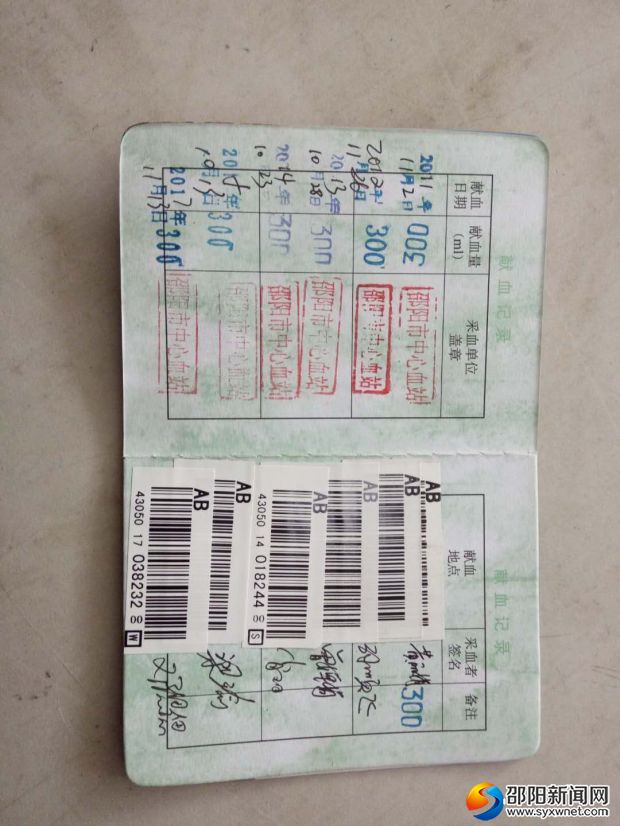 献血记录
献血日期 献血量(ml) 采血单位盖章
2011年11月2日 300 邵阳市中心血站
2012年11月26日 300 邵阳市中心血站
2013年10月28日 300 邵阳市中心血站
2014年10 23 300 邵阳市中心血站
300 邵阳市中心血站
2017年11月13日 300 邵阳市中心血站
献血记录
献血地点 采血者签名 备注
300
AB
AB
AB
AB
43050 14 018244
S
AB
43050 17 038232
W
邵阳新闻网
www.syxwnet.com